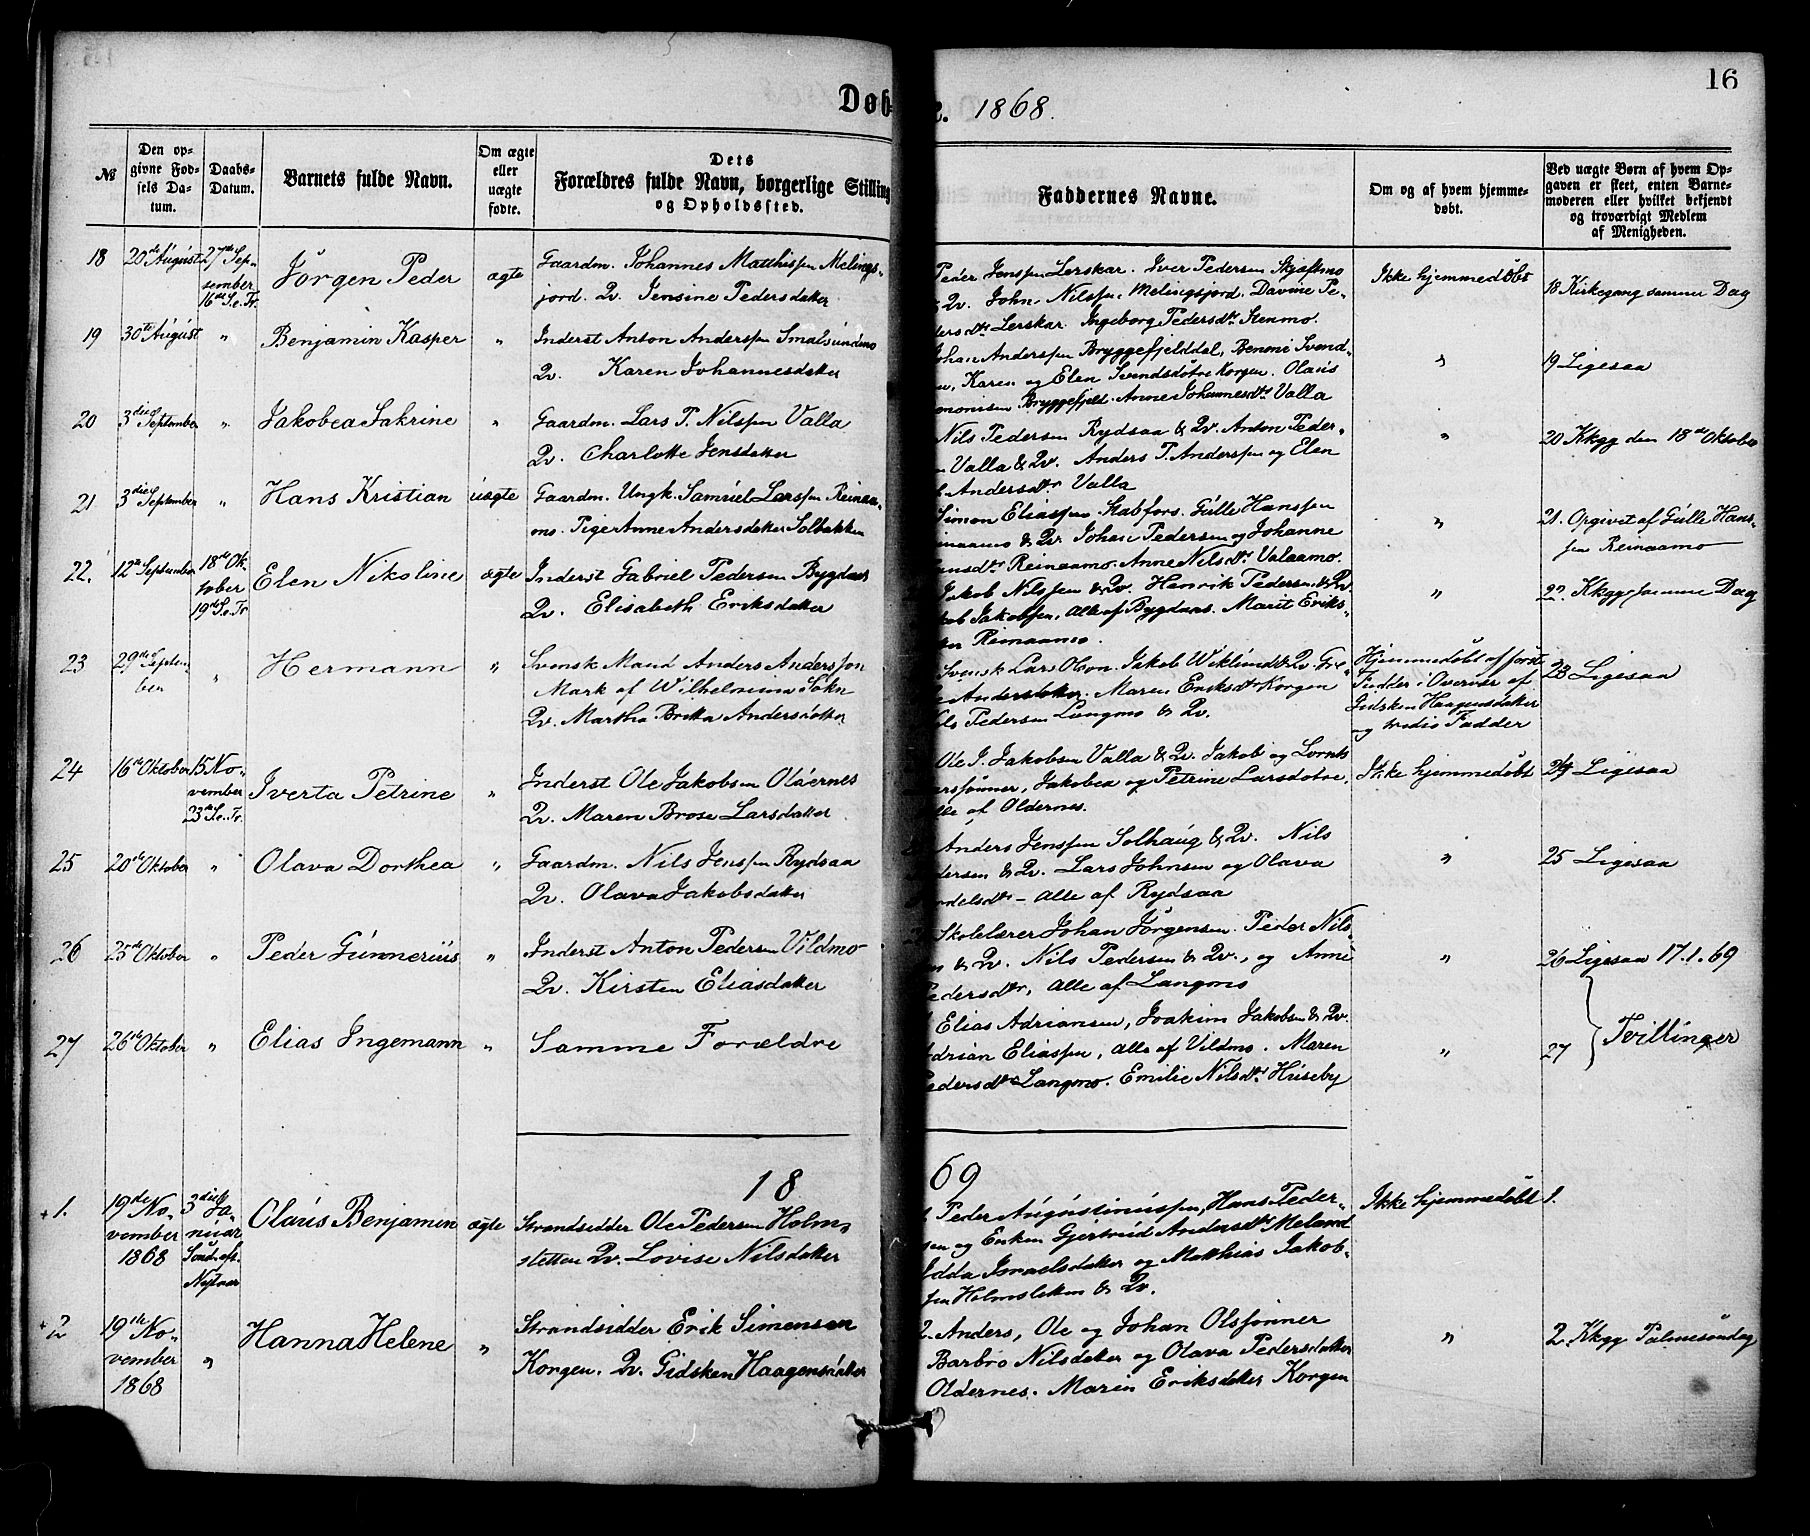 16
Døb-
e. 1868.
№
Den op-
givne Fød-
sels Da-
tum.
Daabs-
Datum.
Barnets fulde Navn.
Om ægte
eller
uægte
fødte.
Dets
Forældres fulde Navn, borgerlige Stilling
og Opholdssted.
Faddernes Navne.
Om og af hvem hjemme-
døbt.
Ved uægte Børn af hvem Op-
gaven er skeet, enten Barne-
moderen eller hvilket bekjendt
og troværdigt Medlem
af Menigheden.
18
20de August
27de Sep-
tember
16de S.e.Tr.
Jørgen Peder
ægte
Gaardm. Johannes Matthissen Melings-
jord. Qv. Jensine Pedersdatter
Peder Jenssen Lerskar. Iver Pedersen Skjæftmo
& Qv. John Nilssen Melingsjord. Davine Pe-
dersdtr Lerskar. Ingeborg Pedersdtr Stenmo.
Ikke hjemmedøbt
18 Kirkegang samme Dag
19
30te August
"
Benjamin Kasper
"
Inderst Anton Anderssen Smalsundmo
Qv. Karen Johannesdatter
Johan Anderssen Bryggefjelddal, Benoni Svend-
sen, Karen og Elen Svendsdøtre Korgen. Olaus
Bryggefjeld. Anne Johannesdtr Valla
"
19 Ligesaa
20
3die September
"
Jakobea Sakrine
"
Gaardm. Lars P. Nilssen Valla
Qv. Charlotte Jensdatter
Nils Pedersen Rydsaa & Qv. Anton Peder-
sen Valla & Qv. Anders P. Anderssen og Elen
Andersdtr Valla
"
20 Kkgg den 18de Oktober
21
3die September
"
Hans Kristian
uægte
Gaardm. Ungk. Samuel Larssen Reinaa-
mo. Pige Anne Andersdatter Solbakken
Simon Eliassen Stabfors. Gulle Hanssen
Reinaamo & Qv. Johan Pedersen og Johanne
Hansdtr Reinaamo. Anne Nilsdtr Valaamo.
"
21. Opgivet af Gulle Hans-
sen Reinaamo
22.
12te September
18de Ok-
tober
19de S.e.Tr.
Elen Nikoline
ægte
Inderst Gabriel Pedersen Bygdaas
Qv. Elisabeth Eriksdatter
Jakob Nilssen & Qv. Henrik Pedersen & Qv.
Jakob Jakobsen, Alle af Bygdaas. Marit Eriks-
datter Reinaamo.
"
22 Kkgg samme Dag
23
29de Septem-
ber
"
Hermann
"
Svensk Mand Anders Andersson
Mark af Wilhelmina Sokn
Qv. Martha Britta Andersdotter
Svensk Lars Olson. Jakob Wiklund & Qv.
Andersdotter. Maren Eriksdtr Korgen
Nils Pedersen Langmo & Qv.
Hjemmedøbt af først
Fadder i Overvær af
Gidsken Haagensdatter
og tredie Fadder
23 Ligesaa
24
16de Oktober
15 No-
vember
23de S.e.Tr.
Iverta Petrine
"
Inderst Ole Jakobsen Oldernes
Qv. Maren Brose Larsdatter
Ole I. Jakobsen Valla & Qv. Jakob og Lornts
Larssønner, Jakobea og Petrine Larsdøtre,
Alle af Oldernes.
Ikke hjemmedøbt
24 Ligesaa
25
20de Oktober
"
Olava Dorthea
"
Gaardm. Nils Jenssen Rydsaa
Qv. Olava Jakobsdatter
Anders Jenssen Solhaug & Qv. Nils
Pedersen & Qv. Lars Johnsen og Olava
- Alle af Rydsaa
"
25 Ligesaa
26
25de Oktober
"
Peder Gunnerius
"
Inderst Anton Pedersen Vildmo
Qv. Kirsten Eliasdatter
Skolelærer Johan Jørgensen. Peder Nils-
sen & Qv. Nils Pedersen & Qv., og Anne
Pedersdtr, Alle af Langmo
"
26 Ligesaa 17.1.69
27
26de Oktober
"
Elias Ingemann
"
Samme Forældre
Elias Adriansen, Joakim Jakobsen & Qv.
Adrian Eliassen, Alle af Vildmo. Maren
Pedersdtr Langmo. Emilie Nilsdtr Huseby
"
27
Tvillinger
1869
+1.
19de No-
vember
1868
3die Ja-
nuar
Sønd. eft.
Nytaar
Olaus Benjamin
ægte
Strandsidder Ole Pedersen Holm-
sletten Qv. Lovise Nilsdatter
Peder Augustinussen, Hans Peder-
sen og Enken Gjertrud Andersdtr Meland
Edda Israelsdatter og Matthias Jakob-
sen Holmsletten & Qv.
Ikke hjemmedøbt
1.
+2
19de No-
vember
1868
"
Hanna Helene
"
Strandsidder Erik Simensen
Korgen. Qv. Gidsken Haagensdatter
2. Anders, Ole og Johan Olssønner
Barbro Nilsdatter og Olava Pedersdatter
Oldernes. Maren Eriksdatter Korgen
"
2. Kkgg Palmesøndag